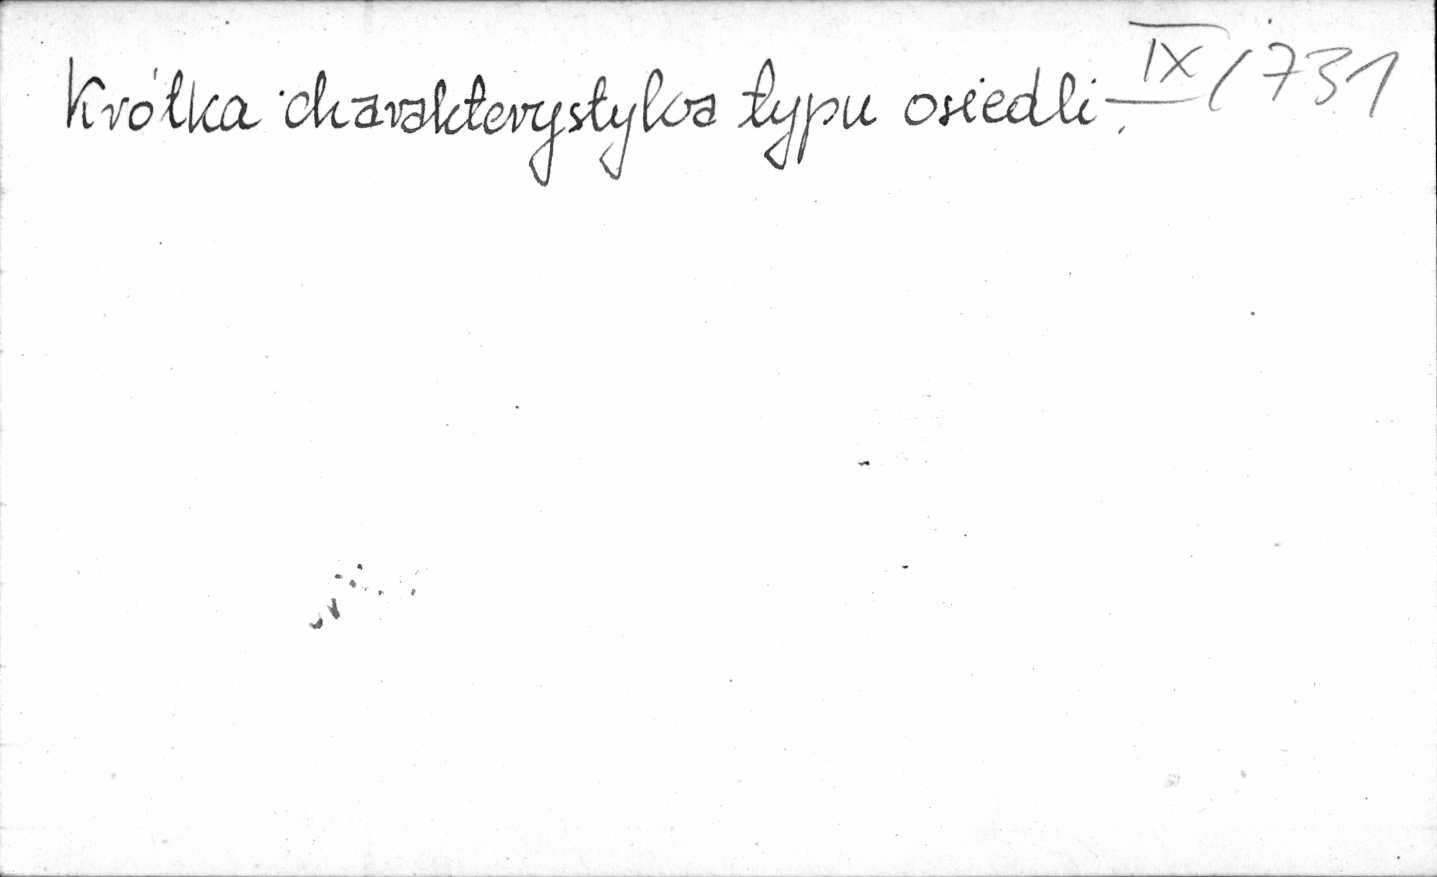 Krótka charakterystyka typu osiedli. IX/731